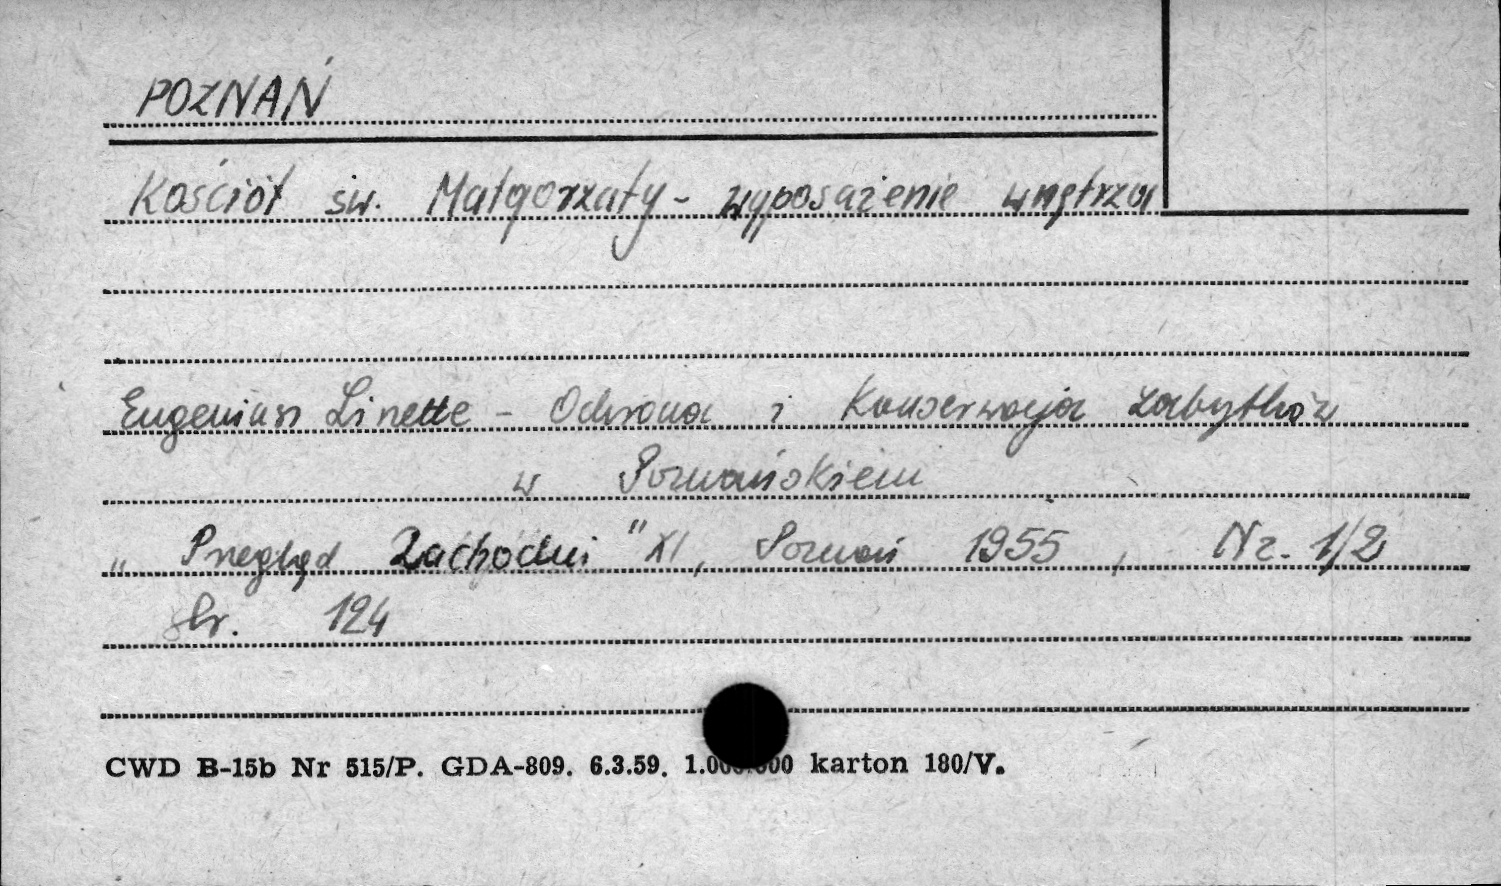 POZNAŃ
Kościół św. Małgorzaty - wyposażenie wnętrza
Eugeniusz Linette - Ochrona i Konserwacja zabytków
w Poznańskiem
„Przegląd Zachodni" XI, Poznań 1955, Nr. 1/2
str. 124
CWD B-15b Nr 515/P. GDA-809. 6.3.59. 1.000.000 karton 180/V.